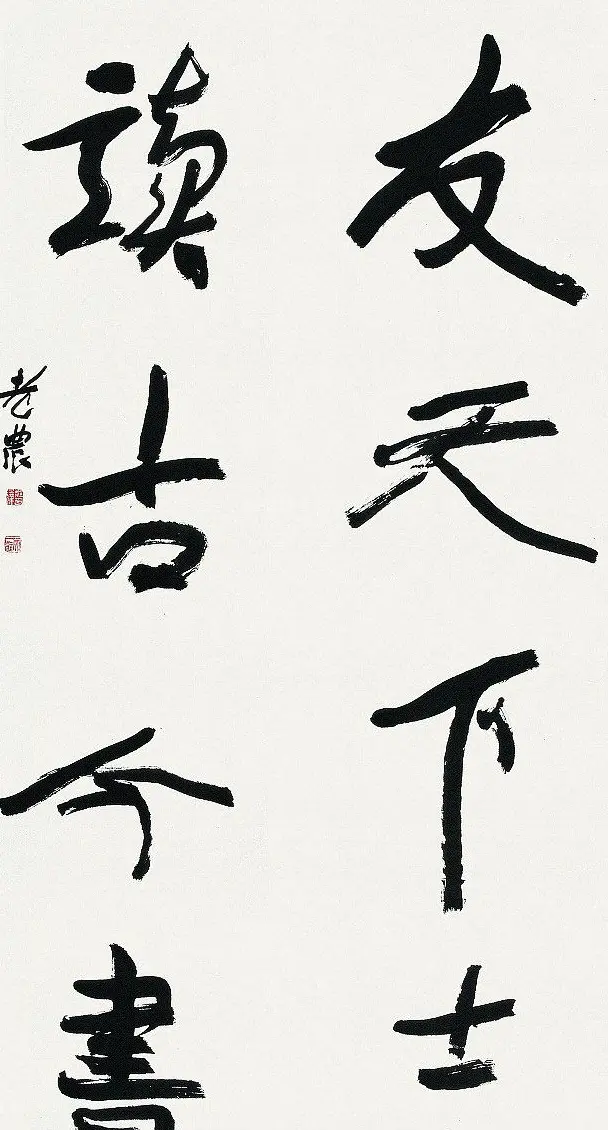 友天下士
讀古今書
老農